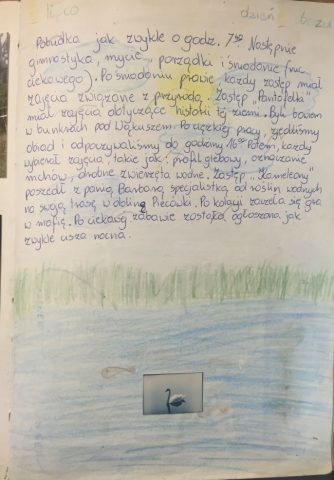 lipca dzień
Pobudka jak zwykle o godz. 7³⁰. Następnie
gimnastyka, mycie, porządki i śniadanie (nic
ciekawego). Po śniadaniu prawie każdy zastęp miał
zajęcia związane z przyrodą. Zastęp "Pantofelka"
miał zajęcia dotyczące historii tej ziemi. Był bowiem
w bunkrach pod Wałkuszem. Po ciężkiej pracy, zjedliśmy
obiad i odpoczywaliśmy do godziny 16⁰⁰. Potem, każdy
wybierał zajęcia takie jak: profil glebowy, oznaczanie
mchów, drobne zwierzęta wodne. Zastęp "Kameleony"
poszedł z panią Barbarą specjalistką od roślin wodnych
na swoją trasę w dolinę Piecówki. Po kolacji zaczęła się gra
w mafię. Po ciekawej zabawie została ogłoszona jak
zwykle cisza nocna.